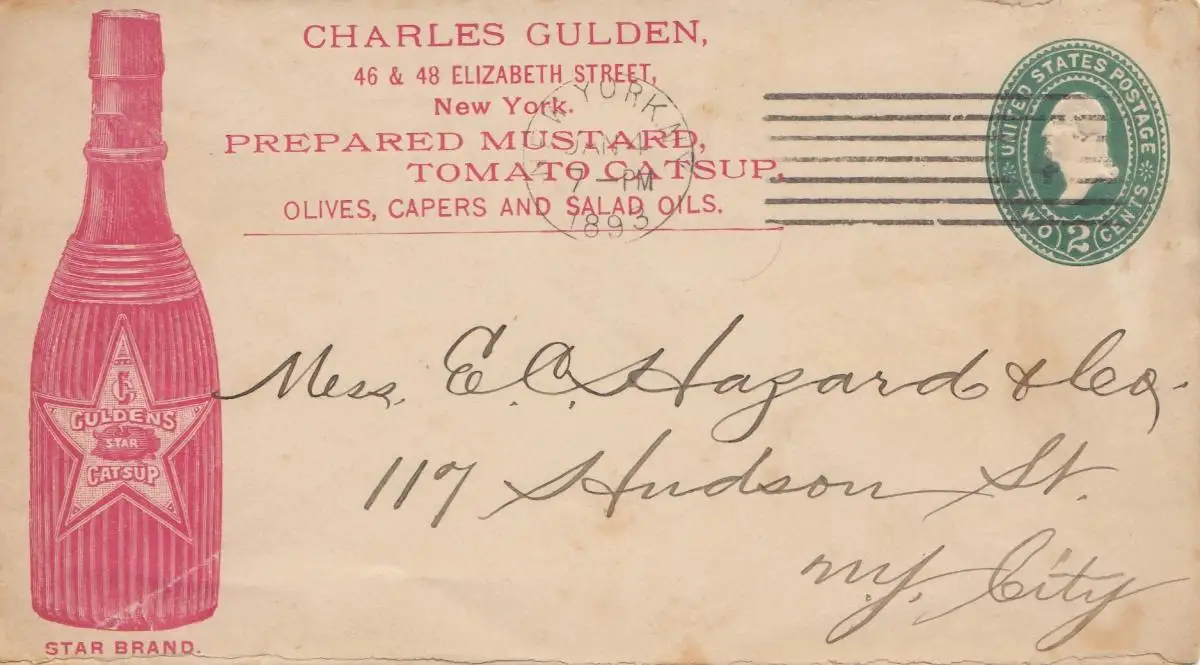 CHARLES GULDEN,
46 & 48 ELIZABETH STREET,
New York.
PREPARED MUSTARD,
TOMATO CATSUP,
OLIVES, CAPERS AND SALAD OILS.
NEW YORK, N.Y.
JAN 4
7 - PM
1893
UNITED STATES POSTAGE
TWO 2 CENTS
GULDENS
STAR
CATSUP
STAR BRAND.
Mess. E. C. Hazard & Co.
117 Hudson St.
N.Y. City